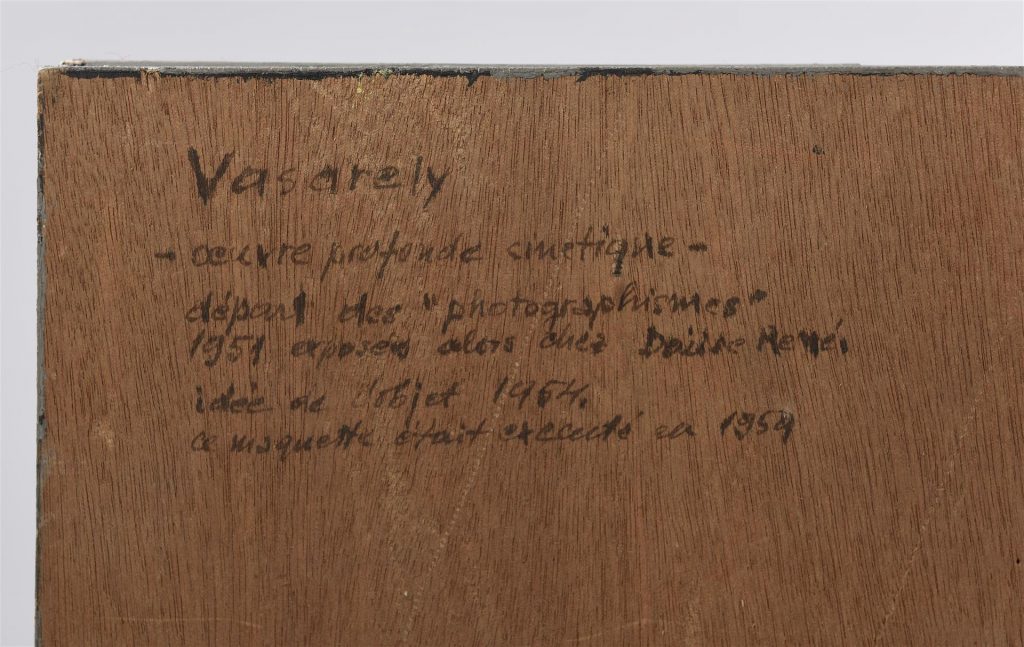 Vasarely
- œuvre profonde cinétique -
départ des "photographismes"
1951 exposés alors chez Denise René,
idée de l'objet 1954.
ce maquette était exécuté en 1959